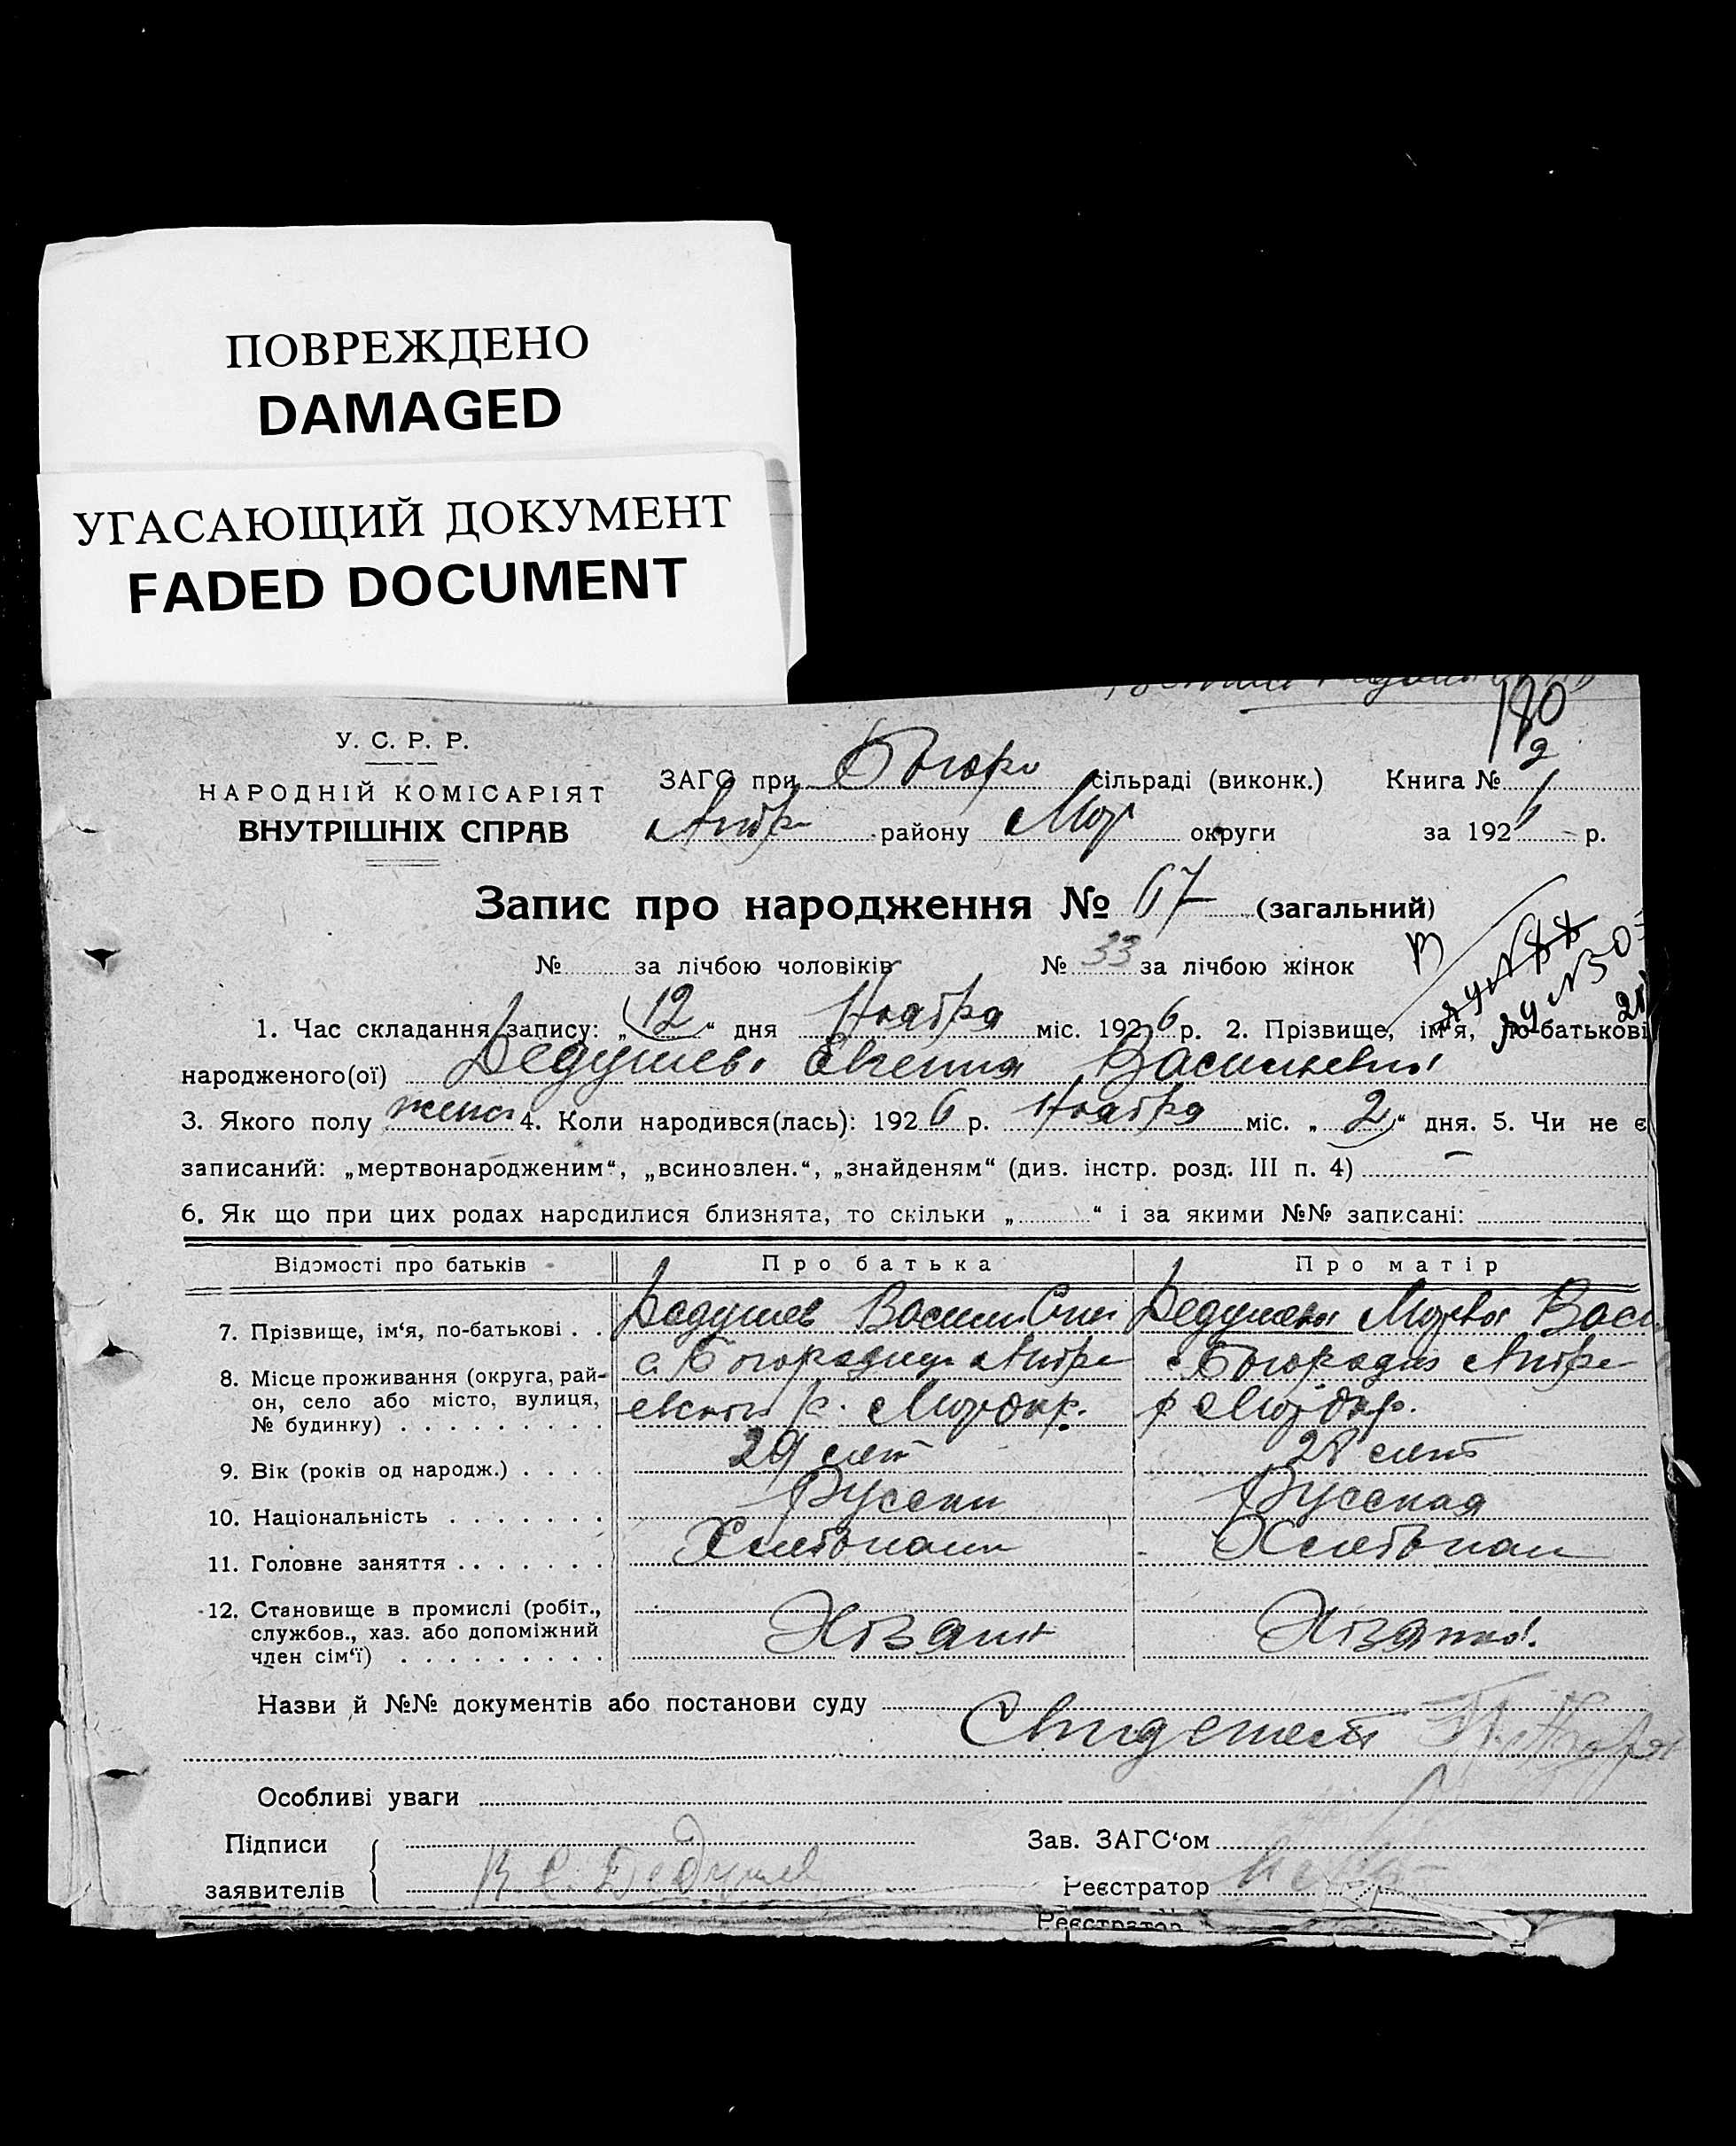 ПОВРЕЖДЕНО
DAMAGED
УГАСАЮЩИЙ ДОКУМЕНТ
FADED DOCUMENT
180
У. С. Р. Р.
НАРОДНІЙ КОМІСАРІЯТ
ВНУТРІШНІХ СПРАВ
ЗАГС при сільраді (виконк.) Книга № 2
району округи за 1926 р.
Запис про народження № 67 (загальний)
№ за лічбою чоловіків № 33 за лічбою жінок
1. Час складання запису: „12“ дня Ноября міс. 1926 р. 2. Прізвище, ім‘я, по-батькові
народженого(ої) Дедушева Евгения Васильевна
3. Якого полу жена 4. Коли народився(лась): 1926 р. Ноября міс. „2“ дня. 5. Чи не є
записаний: „мертвонародженим“, „всиновлен.“, „знайденям“ (див. інстр. розд. III п. 4) —
6. Як що при цих родах народилися близнята, то скільки „ “ і за якими №№ записані:
Відомості про батьків Про батька Про матір
7. Прізвище, ім‘я, по-батькові . . Дедушев Васили Дедушева Васи
8. Місце проживання (округа, рай-
он, село або місто, вулиця,
№ будинку) . . . . . . . . .
9. Вік (років од народж.) . . . . 29 лет 28 лет
10. Національність . . . . . . . Русски Русская
11. Головне заняття . . . . . . . Хлебопаш Хлебопаш
12. Становище в промислі (робіт.,
службов., хаз. або допоміжний
член сім‘ї) . . . . . . . . . Хозяин Хозяйка
Назви й №№ документів або постанови суду
Особливі уваги
Підписи
заявителів В С. Дедушев
Зав. ЗАГС‘ом
Реєстратор
Реєстратор